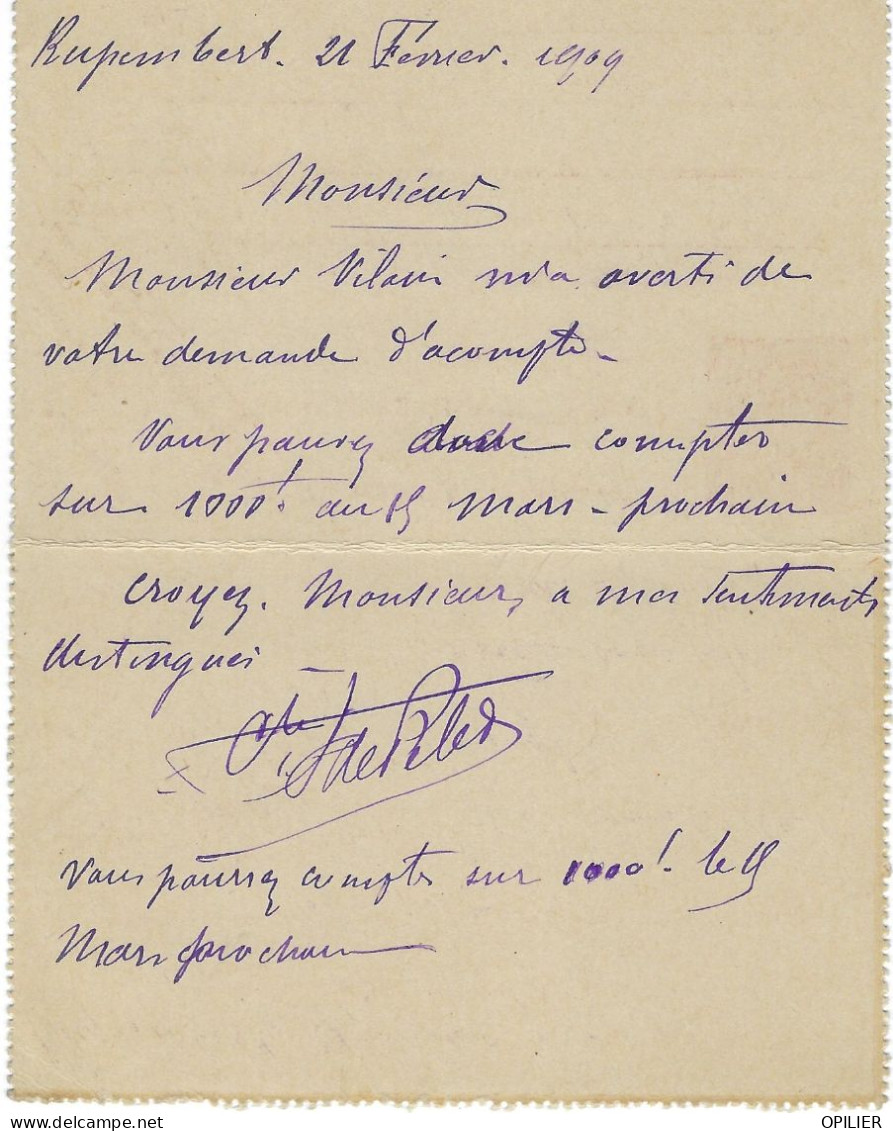 Rupembert. 21 Février. 1909
Monsieur
Monsieur Vilain m'a averti de
votre demande d'acompte -
Vous pourez donc compter
sur 1000f. au 15 Mars - prochain
Croyez. Monsieur, a mes sentiments
distingués -
Vous pourrez compter sur 1000f. le 15
Mars prochain
OPILIER